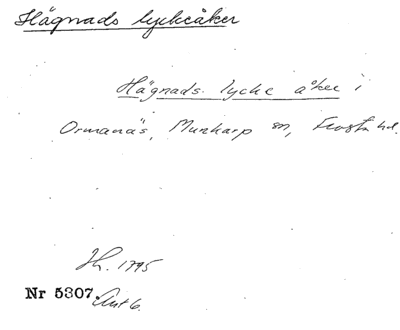 Hägnads lyckeåker
Hägnads lycke åker i
Ormanäs, Munkarp sn, Frosta hd.
Sk. 1795
Nr 5307. Akt 6.